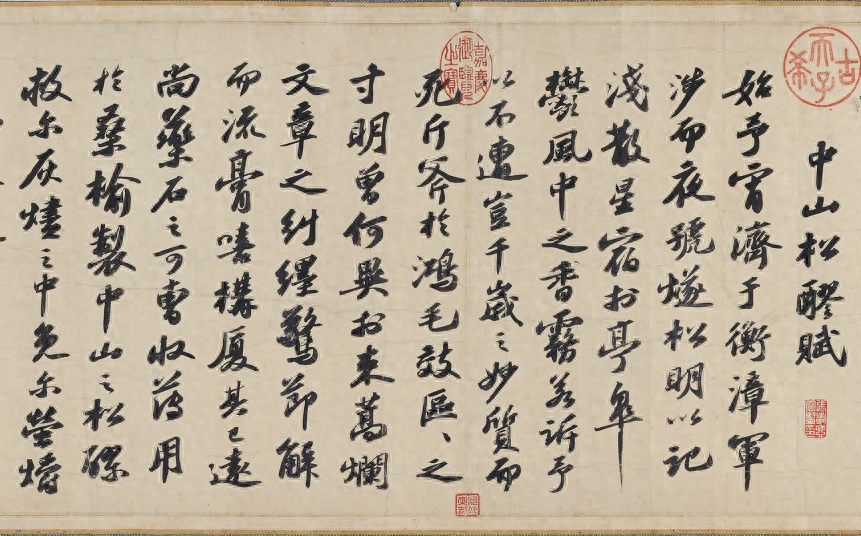 古希天子
中山松醪賦
始予宵濟于衡漳軍
涉而夜號燧松明以記
淺散星宿於亭皋
鬱風中之香霧若訴予
以不遭豈千歲之妙質而
嘉慶御覽之寶
死斤斧於鴻毛效區、之
寸明曾何異於束蒿爛
文章之糾纆驚節解
而流膏嘻構廈其已遠
尚藥石之可曹收薄用
於桑榆製中山之松醪
救尓灰燼之中免尓螢爝